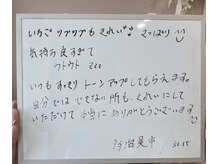 いちご ツブツブも きれい!! さっぱり
気持ち良すぎて
ウトウト zzz
いつも すっきり トーンアップしてもらえます。
自分では できない所も、きれいにして
いただけて 本当に ありがとうございます
多治見市 30代